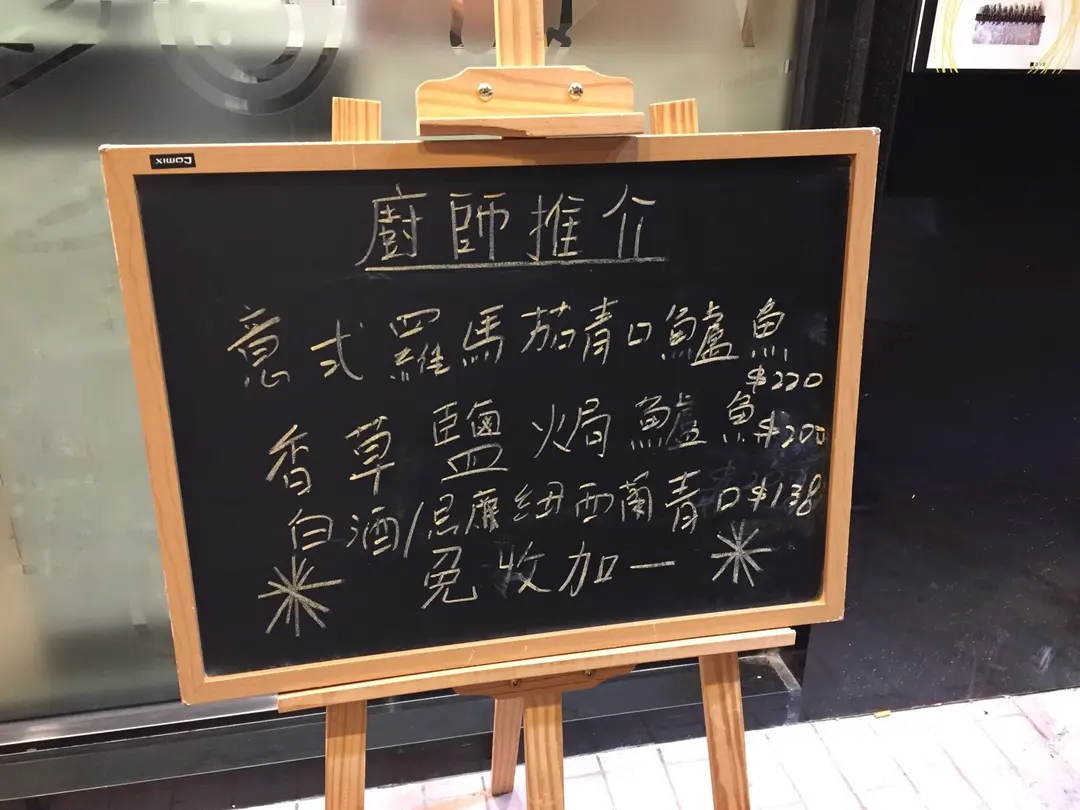 comix
廚師推介
意式羅馬茄青口鱸魚
$220
香草鹽焗鱸魚$200
白酒/忌廉紐西蘭青口$138
免收加一